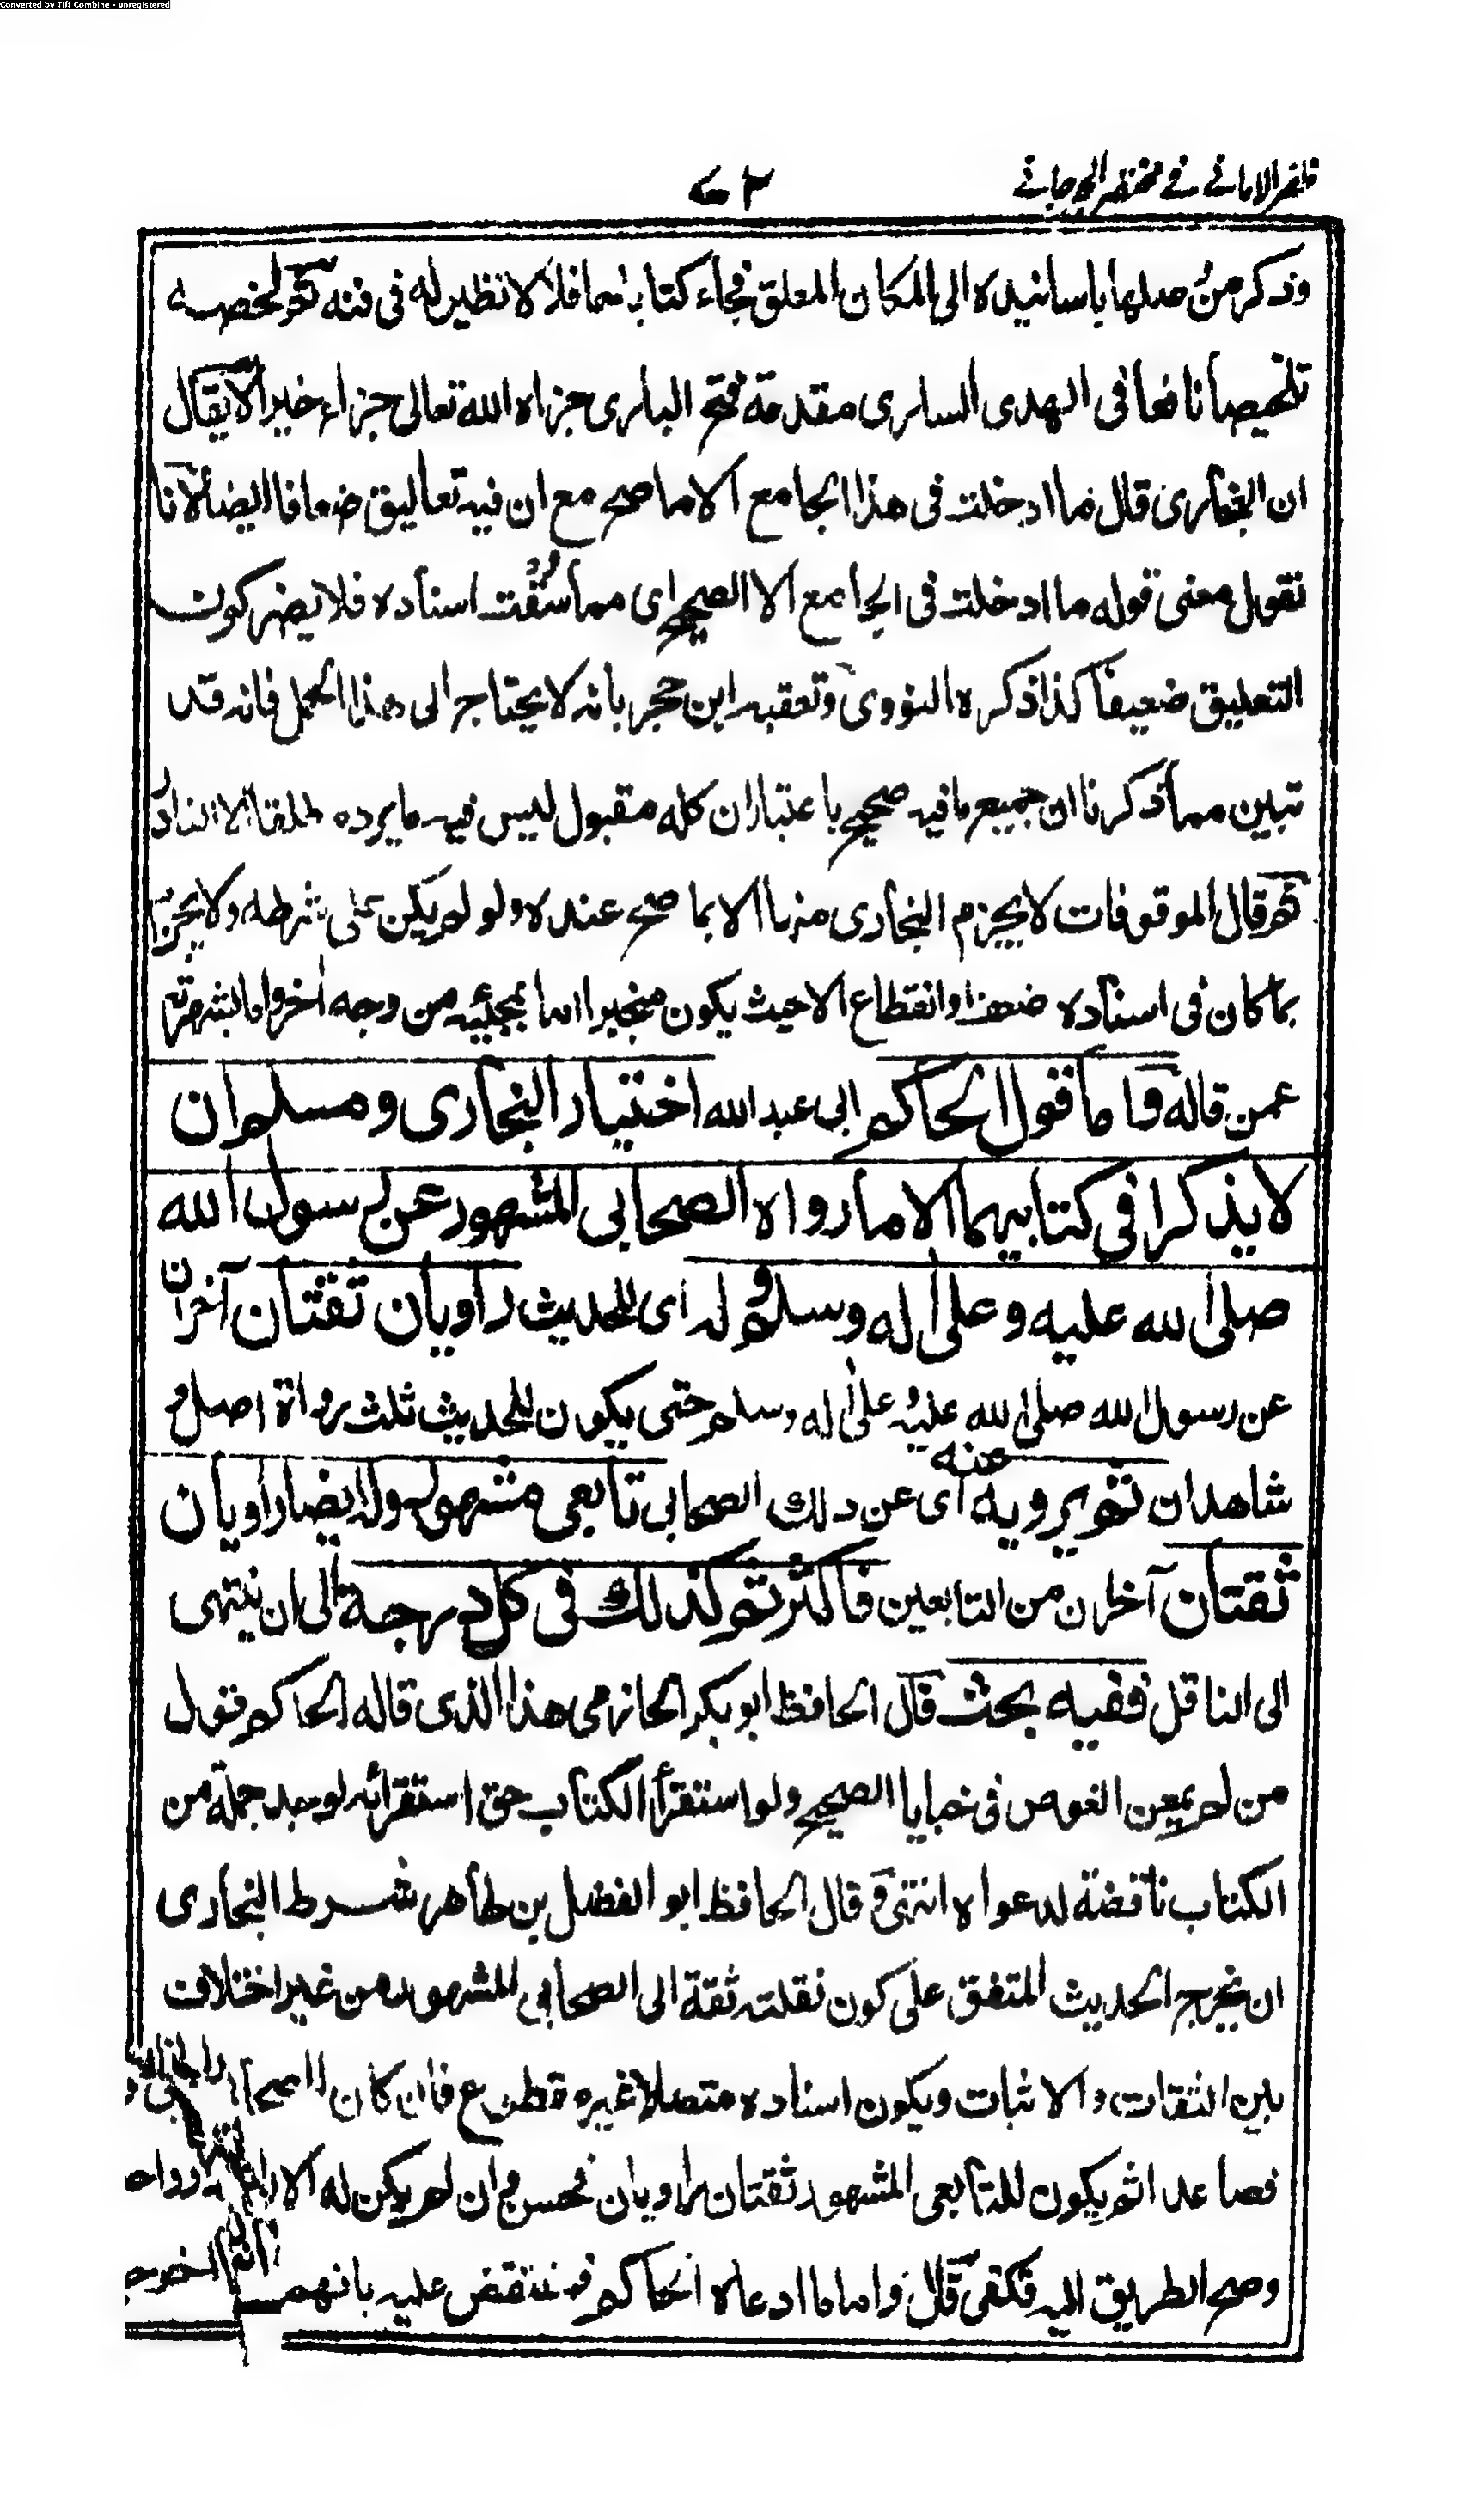 Converted by Tiff Combine - unregistered
ظفر الامانی فی مختصر الجرجانی
۷۳
وذكر من وصلها باسانيده الى المكان المعلق فجاء كتابا حافلا لا نظير له فى فنه ثم لخصه
تلخيصا نافعا فى الهدى السارى مقدمة فتح البارى جزاه الله تعالى جزاء خيرا لا يقال
ان البخارى قال ما ادخلت فى هذا الجامع الا ما صح مع ان فيه تعاليق ضعافا ايضا لانا
نقول معنى قوله ما ادخلت فى الجامع الا الصحيح اى مما سقت اسناده فلا يضر كون
التعليق ضعيفا كذا ذكره النووى وتعقبه ابن حجر بانه لا يحتاج الى هذا الحمل فانه قد
تبين مما ذكرنا ان جميع ما فيه صحيح باعتبار ان كله مقبول ليس فيه ما يرده مطلقا الا النادر
ثم قال الموقوفات لا يجزم البخارى منها الا بما صح عنده ولو لم يكن على شرطه ولا يجزم
بما كان فى اسناده ضعف وانقطاع الا حيث يكون منجبرا اما بمجيئه من وجه آخر واما بشهرته
عمن قاله واما قول الحاكم ابى عبد الله اختيار البخارى ومسلم ان
لا يذكرا فى كتابيهما الا ما رواه الصحابى المشهور عن رسول الله
صلى الله عليه وعلى اله وسلم وله اى للحديث راويان ثقتان آخران
عن رسول الله صلى الله عليه وعلى اله وسلم حتى يكون للحديث ثلث رواة اصل و
شاهدان ثم يرويه عنه اى عن ذلك الصحابى تابعى مشهور وله ايضا راويان
ثقتان آخران من التابعين فاكثر ثم كذلك فى كل درجة الى ان ينتهى
الى الناقل ففيه بحث قال الحافظ ابو بكر الحازمى هذا الذى قاله الحاكم قول
من لم يمعن الغوص فى خبايا الصحيح ولو استقرأ الكتاب حق استقرائه لوجد جملة من
الكتاب ناقضة لدعواه انتهى و قال الحافظ ابو الفضل بن طاهر شرط البخارى
ان يخرج الحديث المتفق على كون نقلته ثقة الى الصحابى المشهور من غير اختلاف
بين الثقات والاثبات ويكون اسناده متصلا غير مقطوع فان كان للصحابى راويان
فصاعدا ثم يكون للتابعى المشهور ثقتان راويان فحسن وان لم يكن له الا راو
وصح الطريق اليه فكفى قال واما ما ادعاه الحاكم فمنتقض عليه بانهم